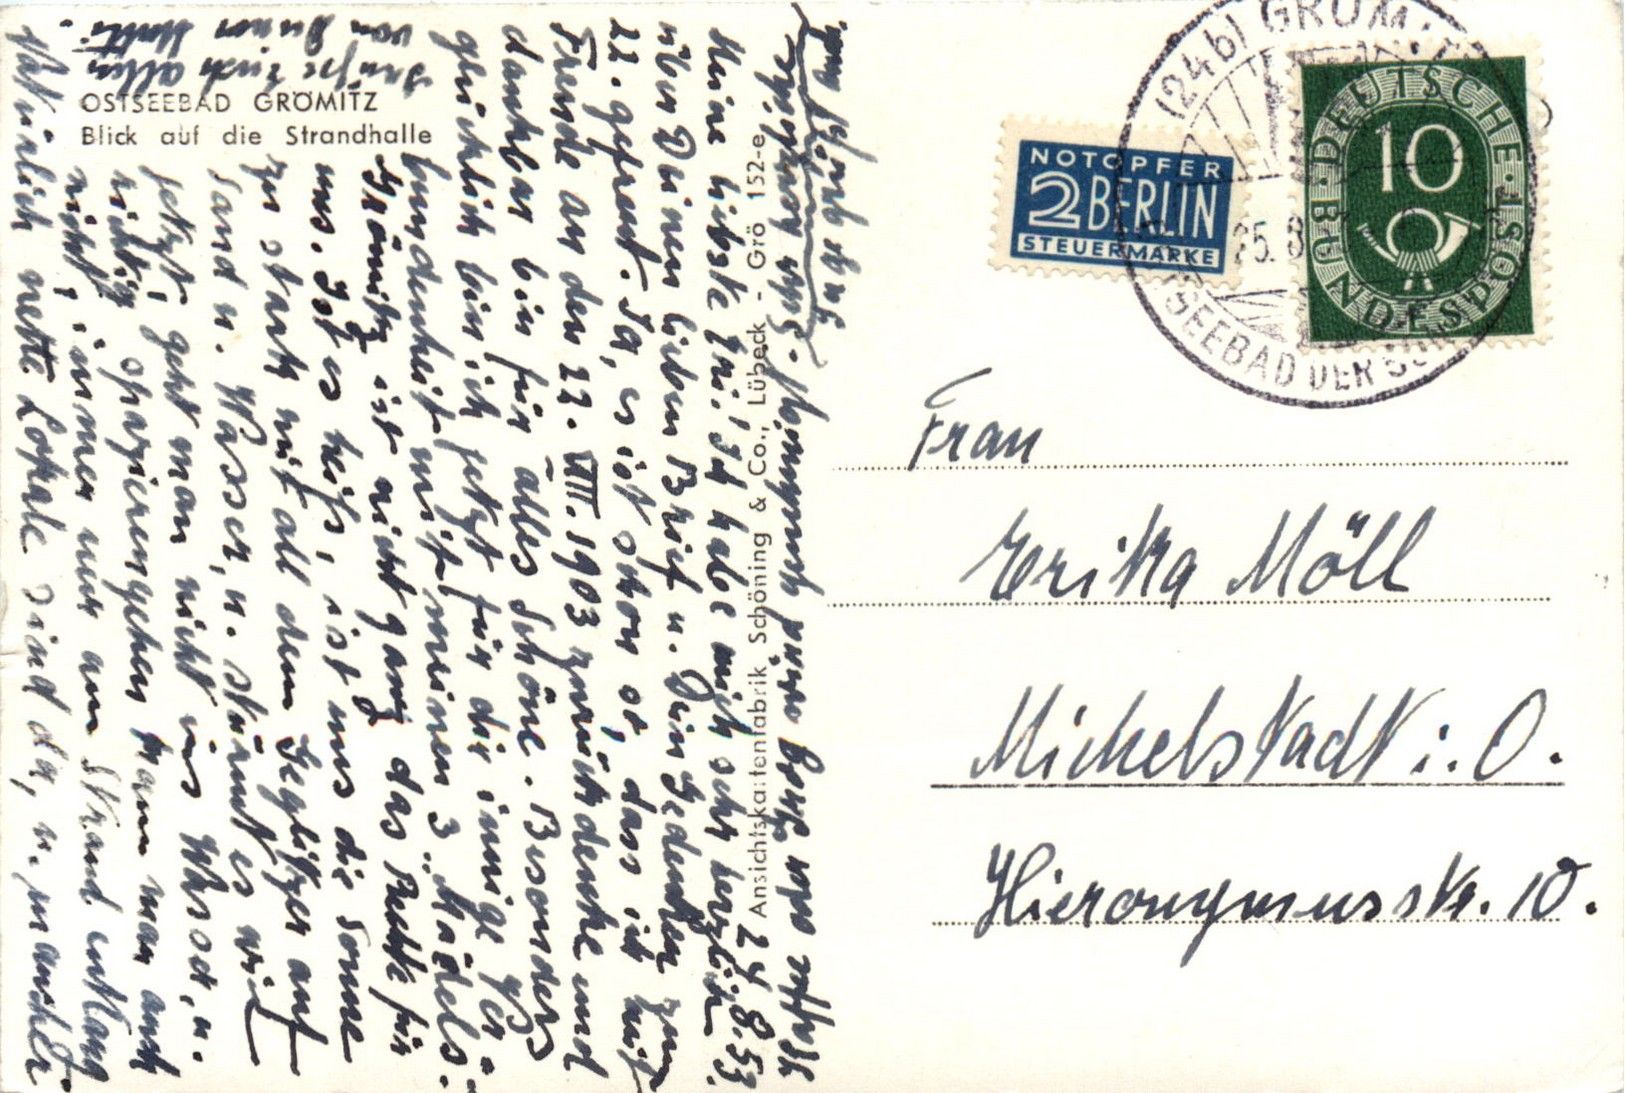 OSTSEEBAD GRÖMITZ
Blick auf die Strandhalle
24.8.53
Meine liebste Eri! Ich habe mich sehr herzlich
über Deinen lieben Brief u. Dein Gedenken zum
22. gefreut. Ja, es ist schon so, dass ich mit
Freude an den 22. VIII. 1903 zurückdenke und
dankbar bin für alles Schöne. Besonders
glücklich bin ich jetzt für die innige Ver-
bundenheit mit meinen 3 Mädels.
Grömitz ist nicht ganz das Rechte für
uns. Ist es heiß, ist uns die Sonne
zu stark mit all dem Geglitzer auf
Sand u. Wasser, u. stürmt es wie
jetzt, geht man nicht ins Wasser, u.
richtig spazierengehen kann man auch
nicht, immer nur am Strand entlang
Natürlich nette Lokale sind da, u. mancher
Grüße Euch allen
von Deiner Mutti.
Ansichtskartenfabrik Schöning & Co., Lübeck - Grö 152-e
NOTOPFER
2 BERLIN
STEUERMARKE
DEUTSCHE
BUNDESPOST
10
(24b) GRÖMITZ
25.8
SEEBAD DER
Frau
Erika Möll
Michelstadt i. O.
Hieronymusstr. 10.